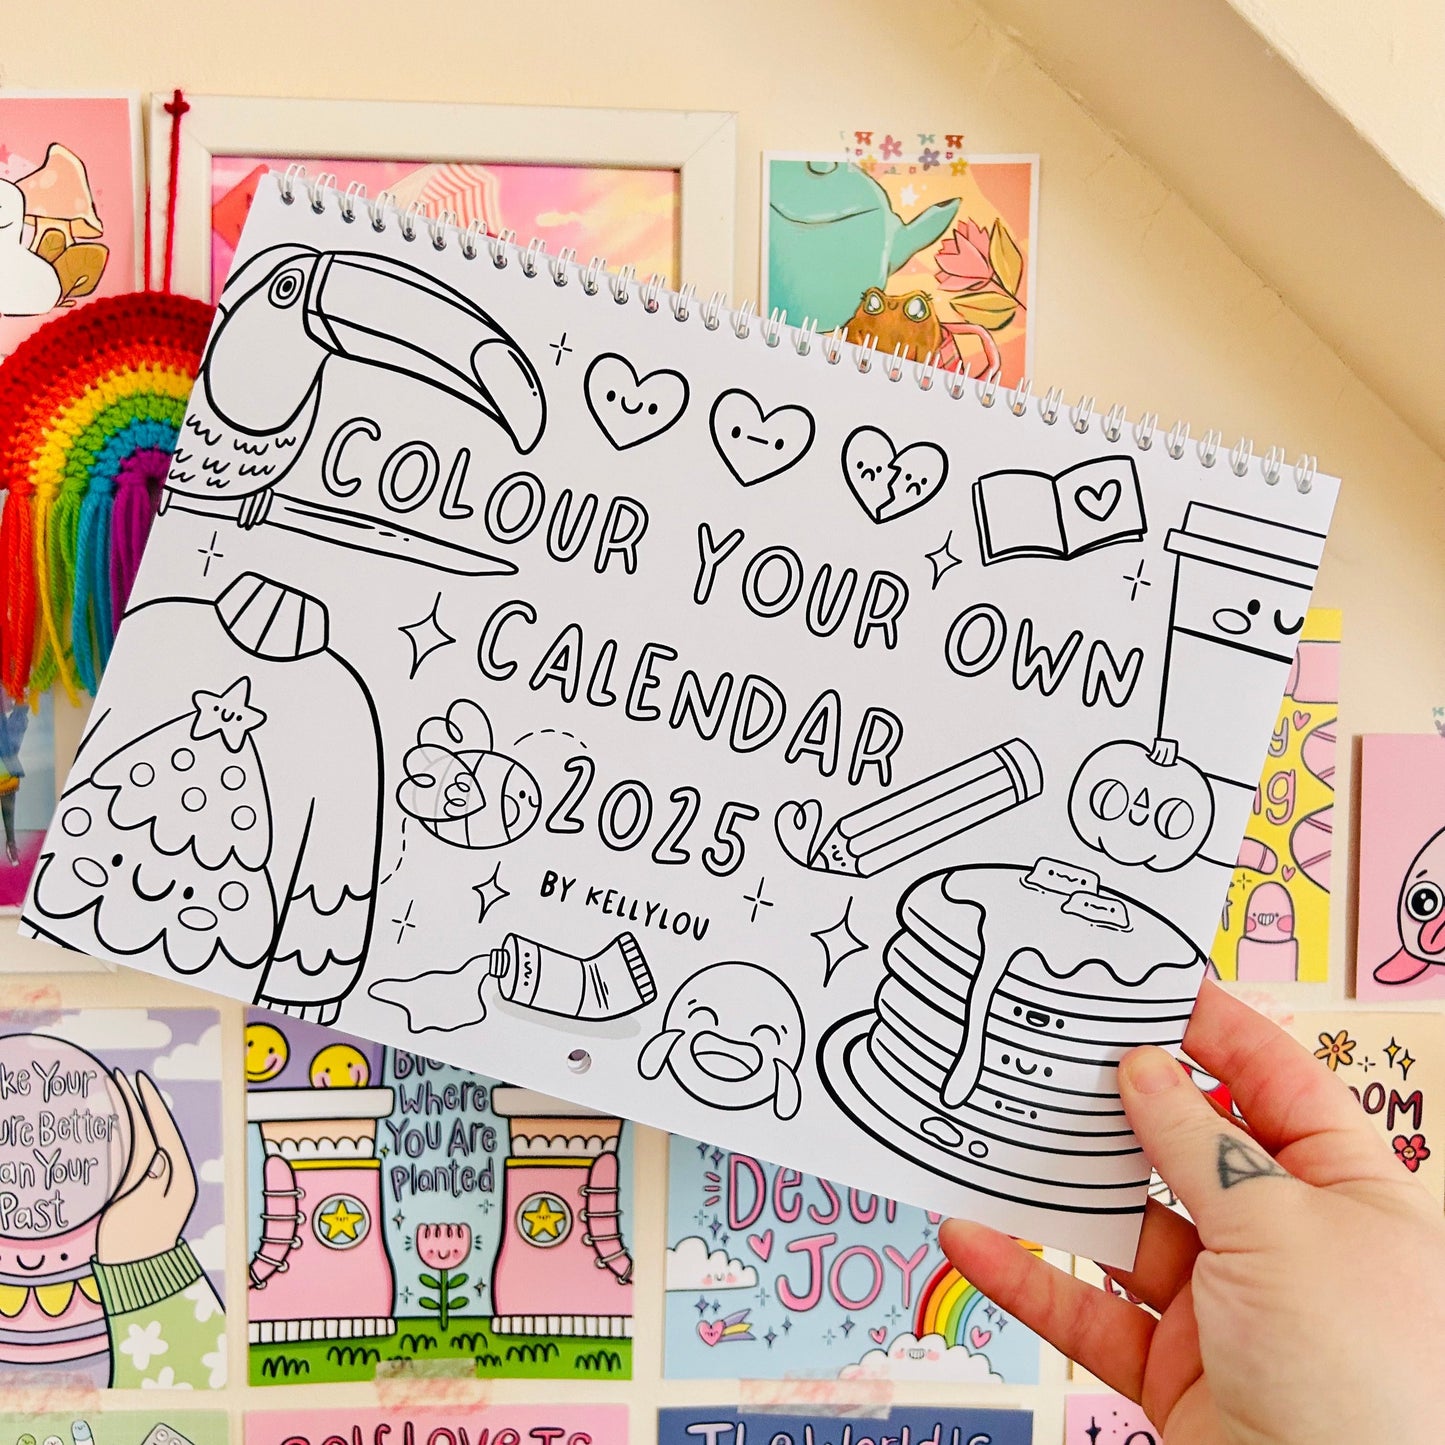 COLOUR YOUR OWN
CALENDAR
2025
BY KELLYLOU
Your
Better
Your
Past
Where
You Are
Planted
JOY